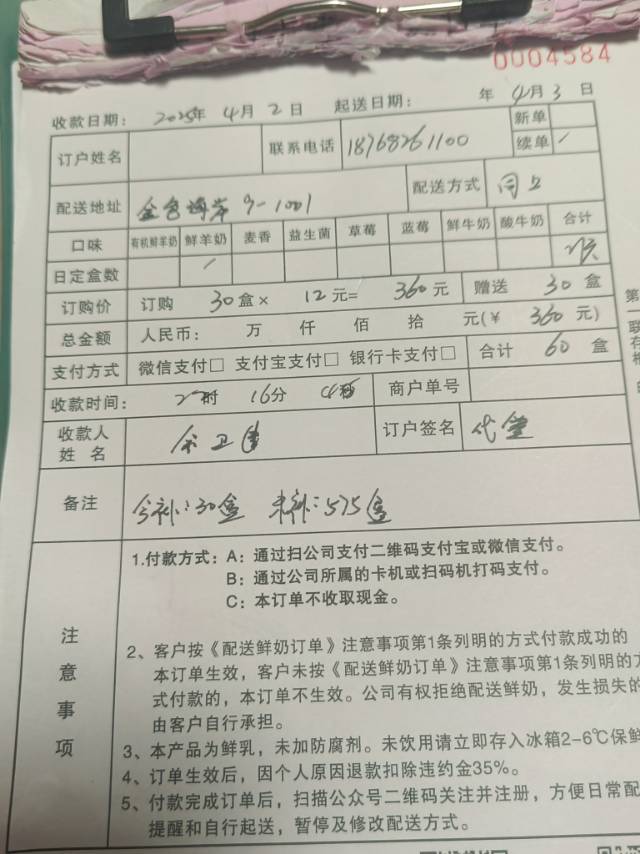 0004584
收款日期: 2025年 4月 2日 起送日期: 年 4月 3日
订户姓名 联系电话 18768261100 新单
续单 /
配送地址 9-1001 配送方式 同上
口味 有机鲜羊奶 鲜羊奶 麦香 益生菌 草莓 蓝莓 鲜牛奶 酸牛奶 合计
日定盒数 /
订购价 订购 30盒× 12元= 360元 赠送 30盒
总金额 人民币: 万 仟 佰 拾 元(¥ 360元)
支付方式 微信支付□ 支付宝支付□ 银行卡支付□ 合计 60盒
收款时间: 时 16分 秒 商户单号
收款人姓名 订户签名 代签
备注 今补:30盒 未补:575盒
注意事项
1.付款方式: A: 通过扫公司支付二维码支付宝或微信支付。
B: 通过公司所属的卡机或扫码机打码支付。
C: 本订单不收取现金。
2、客户按《配送鲜奶订单》注意事项第1条列明的方式付款成功的
本订单生效，客户未按《配送鲜奶订单》注意事项第1条列明的方
式付款的，本订单不生效。公司有权拒绝配送鲜奶，发生损失的
由客户自行承担。
3、本产品为鲜乳，未加防腐剂。未饮用请立即存入冰箱2-6℃保鲜
4、订单生效后，因个人原因退款扣除违约金35%。
5、付款完成订单后，扫描公众号二维码关注并注册，方便日常配
提醒和自行起送，暂停及修改配送方式。
第
联
存